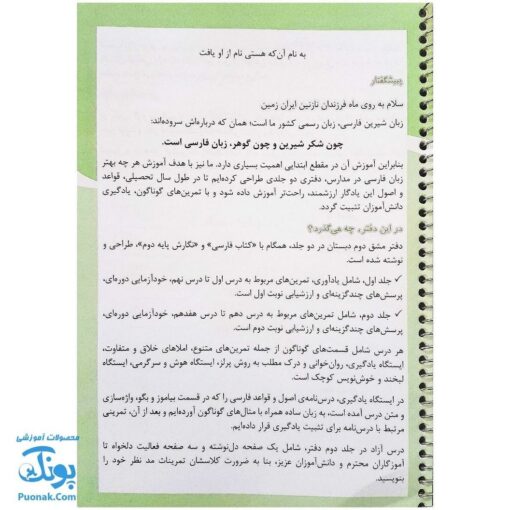 به نام آن‌که هستی نام از او یافت
پیشگفتار
سلام به روی ماه فرزندان نازنین ایران زمین
زبان شیرین فارسی، زبان رسمی کشور ما است؛ همان که درباره‌اش سروده‌اند:
چون شکر شیرین و چون گوهر، زبان فارسی است.
بنابراین آموزش آن در مقطع ابتدایی اهمیت بسیاری دارد. ما نیز با هدف آموزش هر چه بهتر
زبان فارسی در مدارس، دفتری دو جلدی طراحی کرده‌ایم تا در طول سال تحصیلی، قواعد
و اصول این یادگار ارزشمند، راحت‌تر آموزش داده شود و با تمرین‌های گوناگون، یادگیری
دانش‌آموزان تثبیت گردد.
در این دفتر، چه می‌گذرد؟
دفتر مشق دوم دبستان در دو جلد، همگام با «کتاب فارسی» و «نگارش پایه دوم»، طراحی و
نوشته شده است.
✓ جلد اول، شامل یادآوری، تمرین‌های مربوط به درس اول تا درس نهم، خودآزمایی دوره‌ای،
پرسش‌های چندگزینه‌ای و ارزشیابی نوبت اول است.
✓ جلد دوم، شامل تمرین‌های مربوط به درس دهم تا درس هفدهم، خودآزمایی دوره‌ای،
پرسش‌های چندگزینه‌ای و ارزشیابی نوبت دوم است.
هر درس شامل قسمت‌های گوناگون از جمله تمرین‌های متنوع، املاهای خلاق و متفاوت،
ایستگاه یادگیری، روان‌خوانی و درک مطلب به روش پرلز، ایستگاه هوش و سرگرمی، ایستگاه
لبخند و خوش‌نویس کوچک است.
در ایستگاه یادگیری، درس‌نامه‌ی اصول و قواعد فارسی را که در قسمت بیاموز و بگو، واژه‌سازی
و متن درس آمده است، به زبان ساده همراه با مثال‌های گوناگون آورده‌ایم و بعد از آن، تمرینی
مرتبط با درس‌نامه برای تثبیت یادگیری قرار داده‌ایم.
درس آزاد در جلد دوم دفتر، شامل یک صفحه دل‌نوشته و سه صفحه فعالیت دلخواه تا
آموزگاران محترم و دانش‌آموزان عزیز، بنا به ضرورت کلاسشان تمرینات مد نظر خود را
بنویسید.
محصولات آموزشی
پونک
Puonak.Com